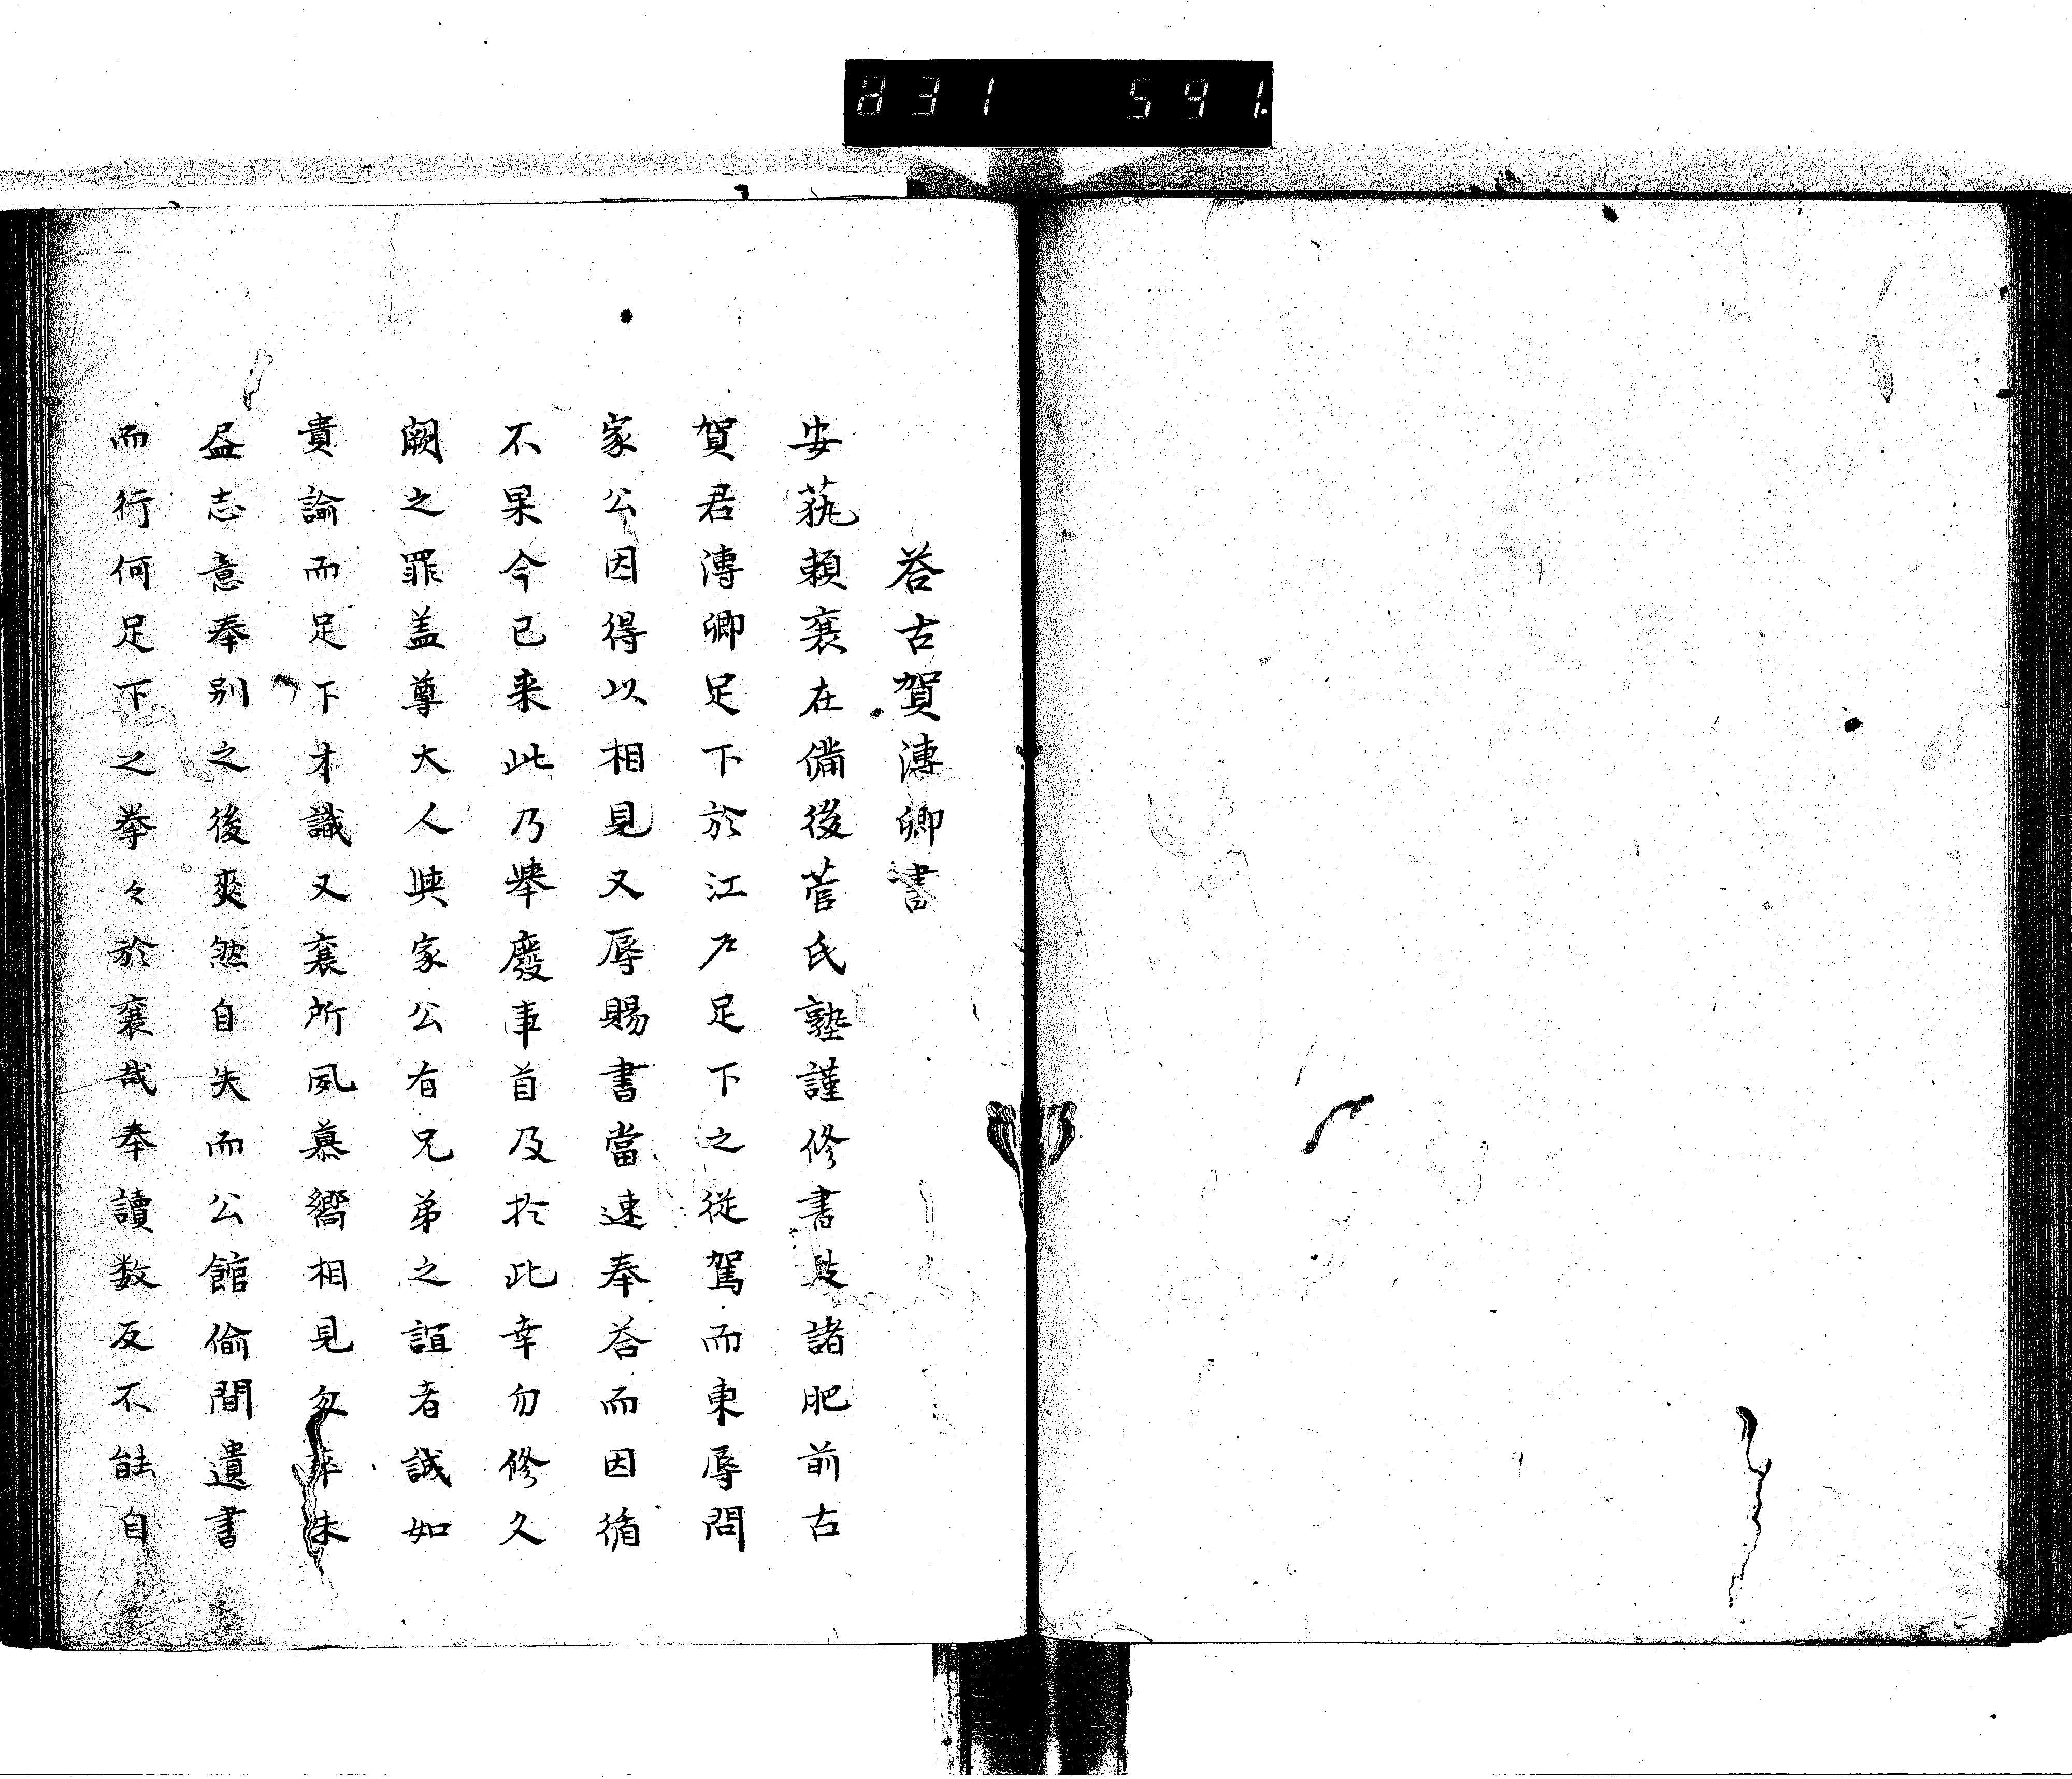 831 591.
答古賀溥卿書
安蓺賴襄在備後菅氏塾謹修書致諸肥前古
賀君溥卿足下於江戶足下之從駕而東辱問
家公因得以相見又辱賜書當速奉答而因循
不果今已来此乃舉廢事首及於此幸勿修久
闕之罪盖尊大人與家公有兄弟之誼者誠如
貴諭而足下才識又襄所夙慕嚮相見匆卒未
盡志意奉別之後爽然自失而公館偷間遺書
而行何足下之拳々於襄哉奉讀数反不能自